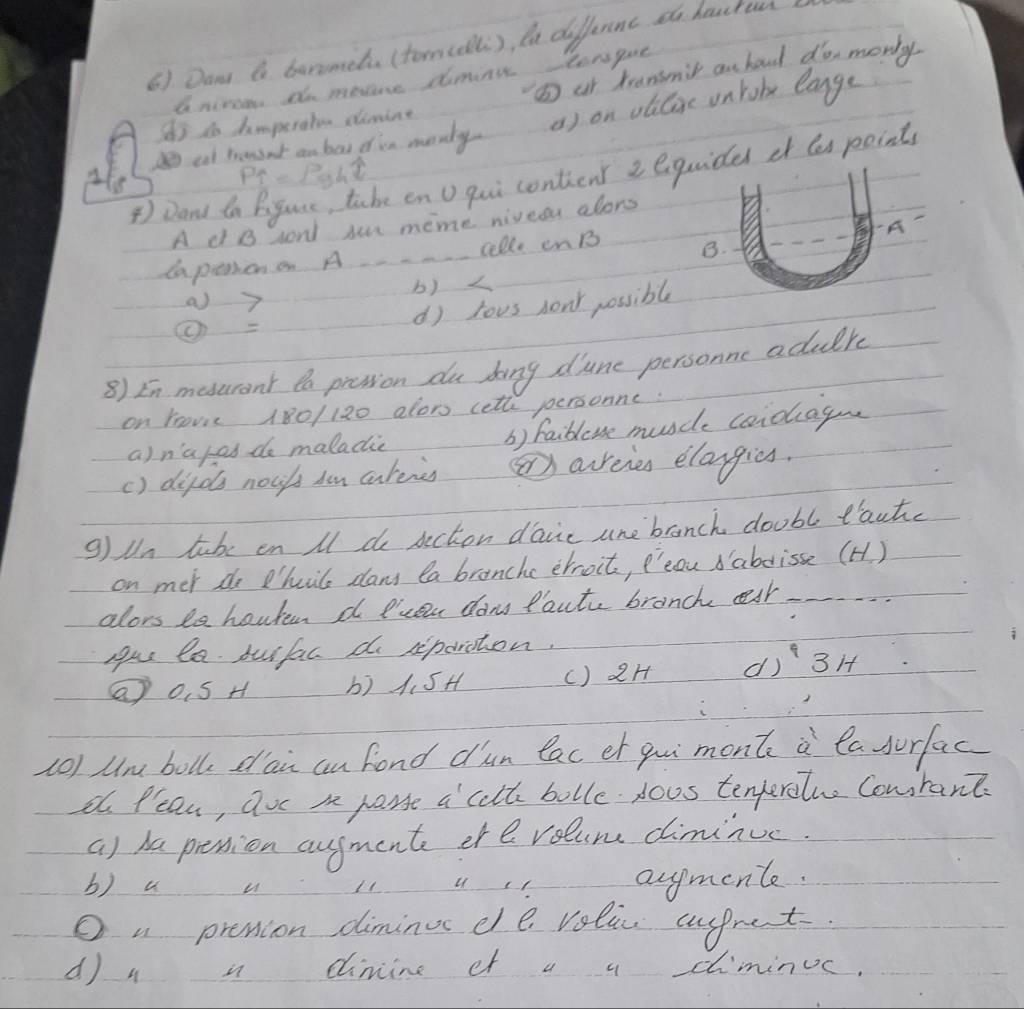 6) Dans le baromètre (torricelli), la différence de hauteur
le niveau du mercure diminue lorsque
la température diminue
est transmit au haut d'un montg
est transmit au bas d'un montg a) on utilise un tube large
P↑ = Pgh↑
7) Dans la figure, tube en U qui contient 2 liquides et les points
A et B sont sur même niveau alors
la pression en A ------- celle en B
a) > b) <
c) = d) tous sont possible
B A
8) En mesurant la pression du sang d'une personne adulte
on trouve 180/120 alors cette personne :
a) n'a pas de maladie b) faiblesse muscle cardiaque
c) dépôts nocifs sur artères d) artères élargies.
9) Un tube en U de section d'aire une branche double l'autre
on met de l'huile dans la branche étroite, l'eau s'abaisse (H)
alors la hauteur de l'eau dans l'autre branche est -------
que la surfac de séparation.
a) 0,5 H b) 1,5H c) 2H d) 3H
10) Une bulle d'air au fond d'un lac et qui monte à la surfac
de l'eau, que se passe à cette bulle sous température Constante
a) Sa pression augmente et le volume diminue.
b) " " " " " augmente.
c) " pression diminue et le volume augment.
d) " " dimine et " " diminue.